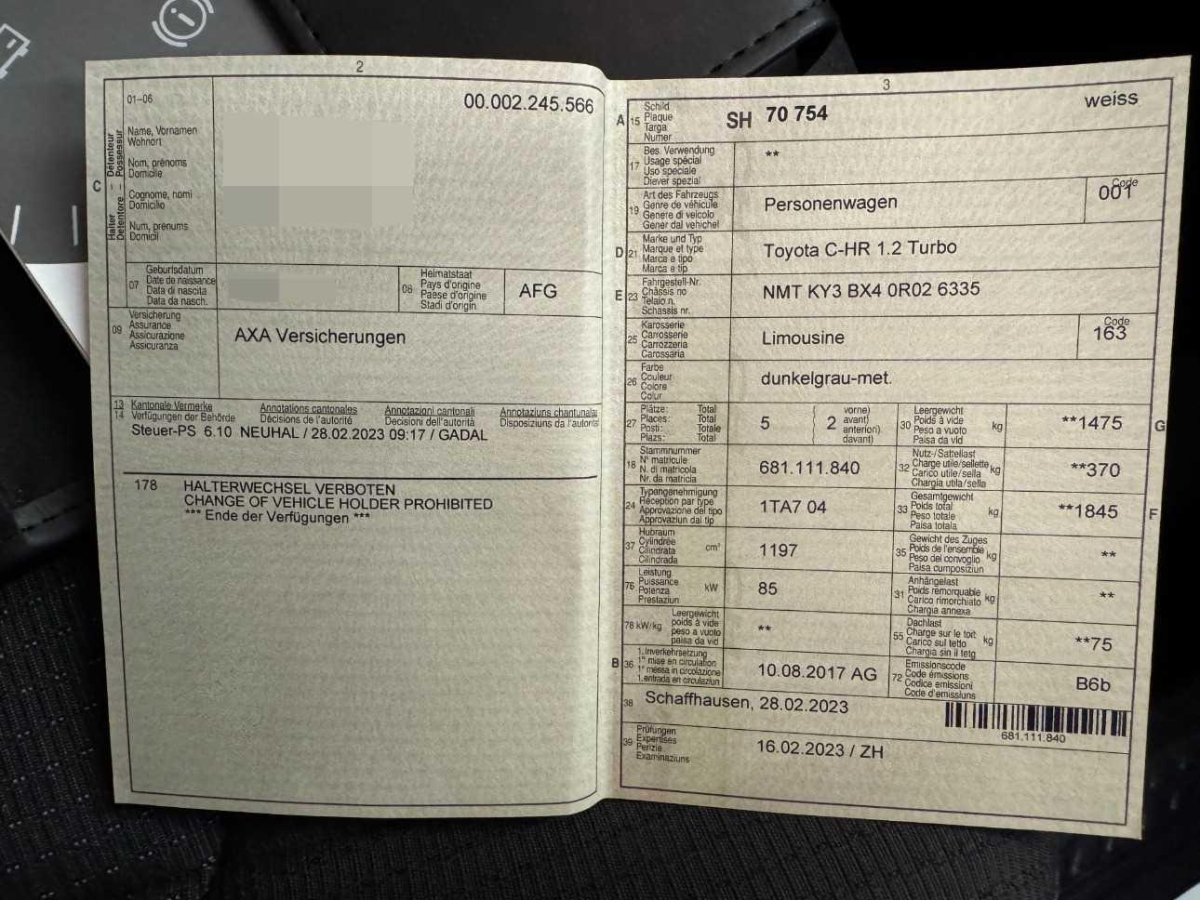 2
01-06
00.002.245.566
C
Halter Détenteur
Detentore Possessur
Name, Vornamen
Wohnort
Nom, prénoms
Domicile
Cognome, nomi
Domicilio
Num, prenums
Domicil
07
Geburtsdatum
Date de naissance
Data di nascita
Data da nasch.
08
Heimatstaat
Pays d'origine
Paese d'origine
Stadi d'origin
AFG
09
Versicherung
Assurance
Assicurazione
Assicuranza
AXA Versicherungen
13
14
Kantonale Vermerke
Verfügungen der Behörde
Annotations cantonales
Décisions de l'autorité
Annotazioni cantonali
Decisioni dell'autorità
Annotaziuns chantunalas
Disposiziuns da l'autorit
Steuer-PS 6.10 NEUHAL / 28.02.2023 09:17 / GADAL
178 HALTERWECHSEL VERBOTEN
CHANGE OF VEHICLE HOLDER PROHIBITED
*** Ende der Verfügungen ***
3
A 15
Schild
Plaque
Targa
Numer
SH 70 754
weiss
17
Bes. Verwendung
Usage spécial
Uso speciale
Diever spezial
**
19
Art des Fahrzeugs
Genre de véhicule
Genere di veicolo
Gener dal vehichel
Personenwagen
Code
001
D 21
Marke und Typ
Marque et type
Marca e tipo
Marca e tip
Toyota C-HR 1.2 Turbo
E 23
Fahrgestell-Nr.
Châssis no
Telaio n.
Schassis nr.
NMT KY3 BX4 0R02 6335
25
Karosserie
Carrosserie
Carrozzeria
Carossaria
Limousine
Code
163
26
Farbe
Couleur
Colore
Colur
dunkelgrau-met.
27
Plätze: Total
Places: Total
Posti: Totale
Plazs: Total
5
2
vorne)
avant)
anteriori)
davant)
30
Leergewicht
Poids à vide
Peso a vuoto
Paisa da vid
kg
**1475
G
18
Stammnummer
N° matricule
N. di matricola
Nr. da matricla
681.111.840
32
Nutz-/Sattellast
Charge utile/sellette
Carico utile/sella
Chargia utila/sella
kg
**370
24
Typengenehmigung
Réception par type
Approvazione del tipo
Approvaziun dal tip
1TA7 04
33
Gesamtgewicht
Poids total
Peso totale
Paisa totala
kg
**1845
F
37
Hubraum
Cylindrée
Cilindrata
Cilindrada
cm³
1197
35
Gewicht des Zuges
Poids de l'ensemble
Peso del convoglio
Paisa cumposiziun
kg
**
76
Leistung
Puissance
Potenza
Prestaziun
kW
85
31
Anhängelast
Poids remorquable
Carico rimorchiato
Chargia annexa
kg
**
78 kW/kg
Leergewicht
poids à vide
peso a vuoto
paisa da vid
**
55
Dachlast
Charge sur le toit
Carico sul tetto
Chargia sin il tetg
kg
**75
B 36
1. Inverkehrsetzung
1re mise en circulation
1a messa in circolazione
1. entrada en circulaziun
10.08.2017 AG
72
Emissionscode
Code émissions
Codice emissioni
Code d'emissiuns
B6b
38
Schaffhausen, 28.02.2023
681.111.840
39
Prüfungen
Expertises
Perizie
Examinaziuns
16.02.2023 / ZH